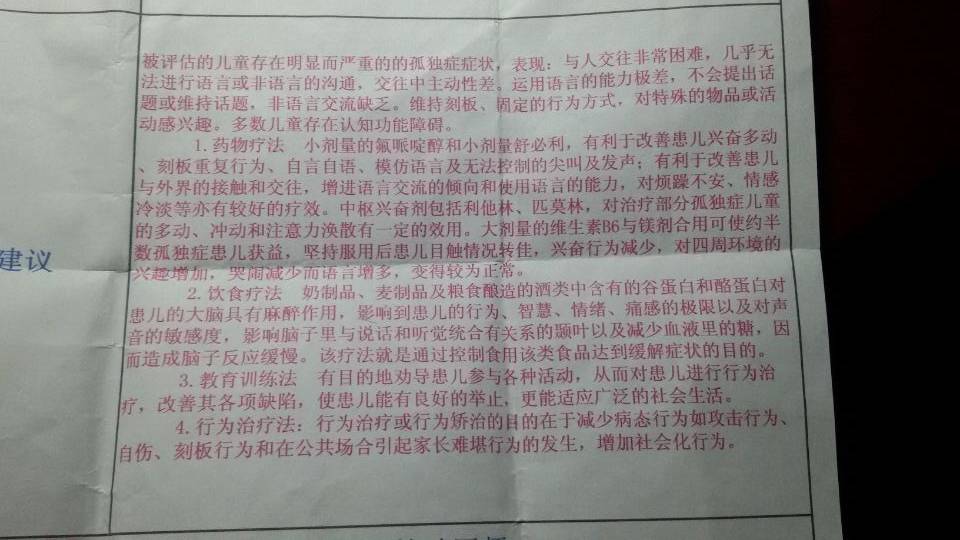 被评估的儿童存在明显而严重的的孤独症症状，表现：与人交往非常困难，几乎无
法进行语言或非语言的沟通，交往中主动性差。运用语言的能力极差，不会提出话
题或维持话题，非语言交流缺乏。维持刻板、固定的行为方式，对特殊的物品或活
动感兴趣。多数儿童存在认知功能障碍。
1.药物疗法 小剂量的氟哌啶醇和小剂量舒必利，有利于改善患儿兴奋多动
、刻板重复行为、自言自语、模仿语言及无法控制的尖叫及发声；有利于改善患儿
与外界的接触和交往，增进语言交流的倾向和使用语言的能力，对烦躁不安、情感
冷淡等亦有较好的疗效。中枢兴奋剂包括利他林、匹莫林，对治疗部分孤独症儿童
的多动、冲动和注意力涣散有一定的效用。大剂量的维生素B6与镁剂合用可使约半
数孤独症患儿获益，坚持服用后患儿目触情况转佳，兴奋行为减少，对四周环境的
兴趣增加，哭闹减少而语言增多，变得较为正常。
建议
2.饮食疗法 奶制品、麦制品及粮食酿造的酒类中含有的谷蛋白和酪蛋白对
患儿的大脑具有麻醉作用，影响到患儿的行为、智慧、情绪、痛感的极限以及对声
音的敏感度，影响脑子里与说话和听觉统合有关系的颞叶以及减少血液里的糖，因
而造成脑子反应缓慢。该疗法就是通过控制食用该类食品达到缓解症状的目的。
3.教育训练法 有目的地劝导患儿参与各种活动，从而对患儿进行行为治
疗，改善其各项缺陷，使患儿能有良好的举止，更能适应广泛的社会生活。
4.行为治疗法：行为治疗或行为矫治的目的在于减少病态行为如攻击行为、
自伤、刻板行为和在公共场合引起家长难堪行为的发生，增加社会化行为。